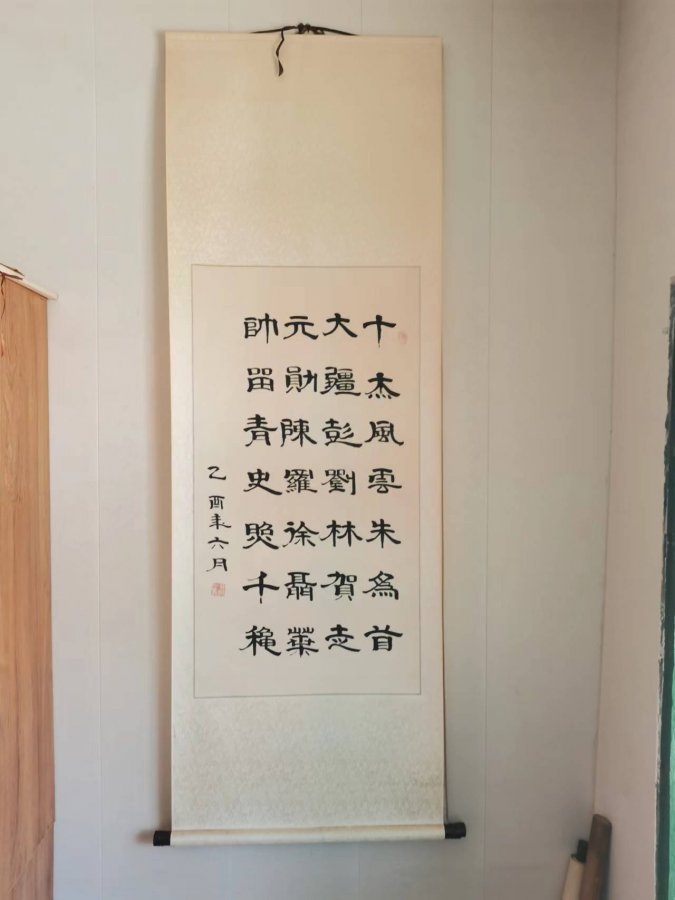 十杰風雲朱為首
大疆彭劉林賀走
元勛陳羅徐聶葉
帥留青史照千穐
乙酉年六月